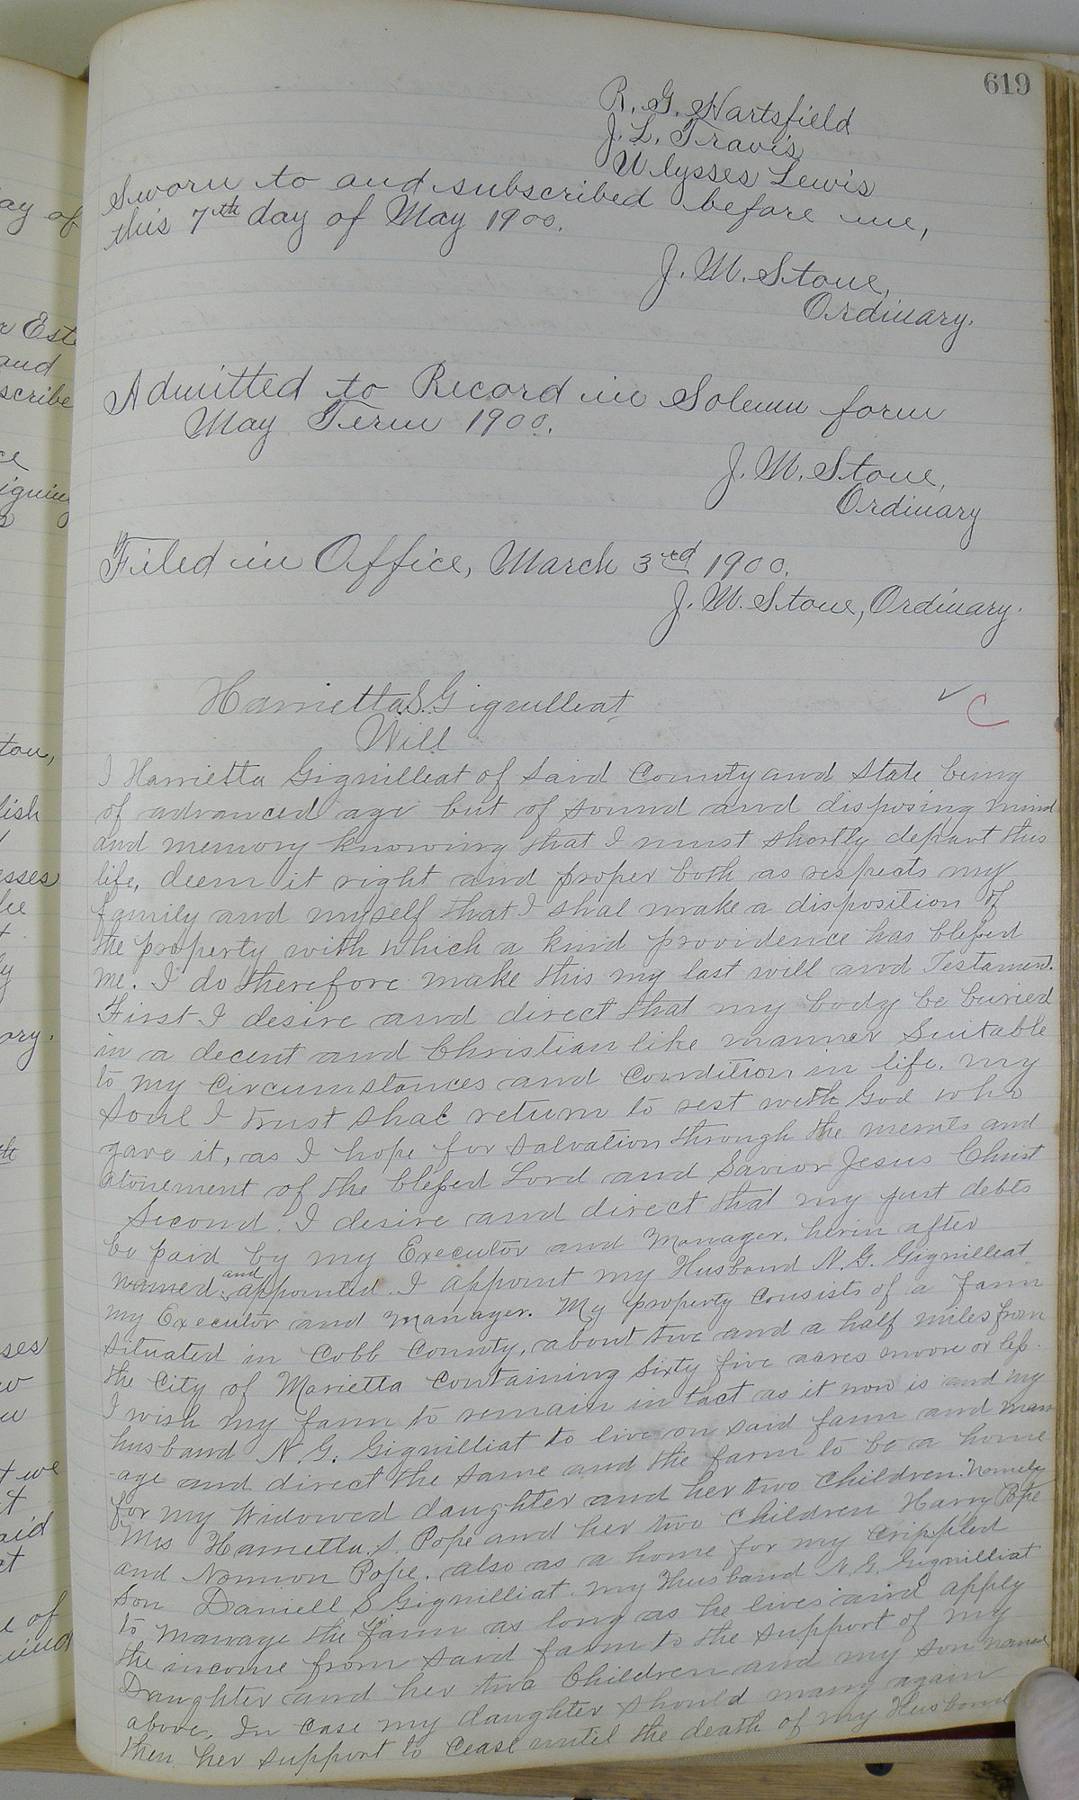 619
R. G. Hartsfield
J. L. Travis
Ulysses Lewis
Sworn to and subscribed before me,
this 7th day of May 1900.
J. M. Stone,
Ordinary.
Admitted to Record in Solemn form
May Term 1900.
J. M. Stone,
Ordinary
Filed in Office, March 3rd 1900.
J. M. Stone, Ordinary.
Harrietta S. Gignilleat
Will
C
I Harrietta Gignilleat of said County and State being
of advanced age but of sound and disposing mind
and memory knowing that I must shortly depart this
life, deem it right and proper both as respects my
family and myself that I shal make a disposition of
the property with which a kind providence has blessed
me. I do therefore make this my last will and Testament.
First I desire and direct that my body be buried
in a decent and Christian like manner Suitable
to my Circumstances and Condition in life. my
Soul I trust shal return to rest with God who
gave it, as I hope for salvation through the merits and
atonement of the blessed Lord and Savior Jesus Christ
Second. I desire and direct that my just debts
be paid by my Executor and Manager. herin after
named and appointed. I appoint my Husband N. G. Gignilleat
my Executor and Manager. My property Consists of a Farm
situated in Cobb County, about two and a half miles from
the City of Marietta Containing Sixty five acres moore or less.
I wish my farm to remain in tact as it now is and my
husband N. G. Gignilliat to live on said farm and man
-age and direct the same and the farm to be a home
for my Widowed daughter and her two Children. Namely
Mrs Harrietta. S. Pope and her two Children Harry Pope
and Nannon Pope. also as a home for my Crippled
Son Daniell S Gignilliat. my Husband N. G. Gignilliat
to manage the farm as long as he lives and apply
the income from said farm to the support of my
Daughter and her two Children and my son named
above. In case my daughter should marry again
then her support to Cease until the death of my Husband